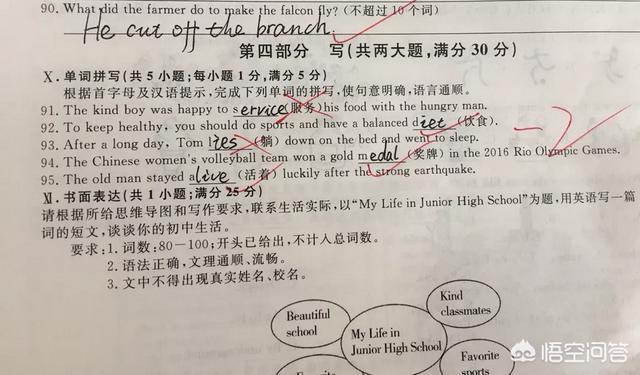 90. What did the farmer do to make the falcon fly? (不超过10个词)
He cut off the branch.
第四部分 写(共两大题,满分30分)
X.单词拼写(共5小题;每小题1分,满分5分)
根据首字母及汉语提示,完成下列单词的拼写,使句意明确,语言通顺。
91. The kind boy was happy to service(服务)his food with the hungry man.
92. To keep healthy, you should do sports and have a balanced diet(饮食).
93. After a long day, Tom lies(躺)down on the bed and went to sleep.
94. The Chinese women's volleyball team won a gold medal(奖牌)in the 2016 Rio Olympic Games.
95. The old man stayed alive(活着)luckily after the strong earthquake.
-2
XI.书面表达(共1小题;满分25分)
请根据所给思维导图和写作要求,联系生活实际,以“My Life in Junior High School”为题,用英语写一篇
词的短文,谈谈你的初中生活。
要求:1.词数:80—100;开头已给出,不计入总词数。
2.语法正确,文理通顺、流畅。
3.文中不得出现真实姓名、校名。
Beautiful
school
My Life in
Junior High School
Kind
classmates
Favorite
sports
悟空问答